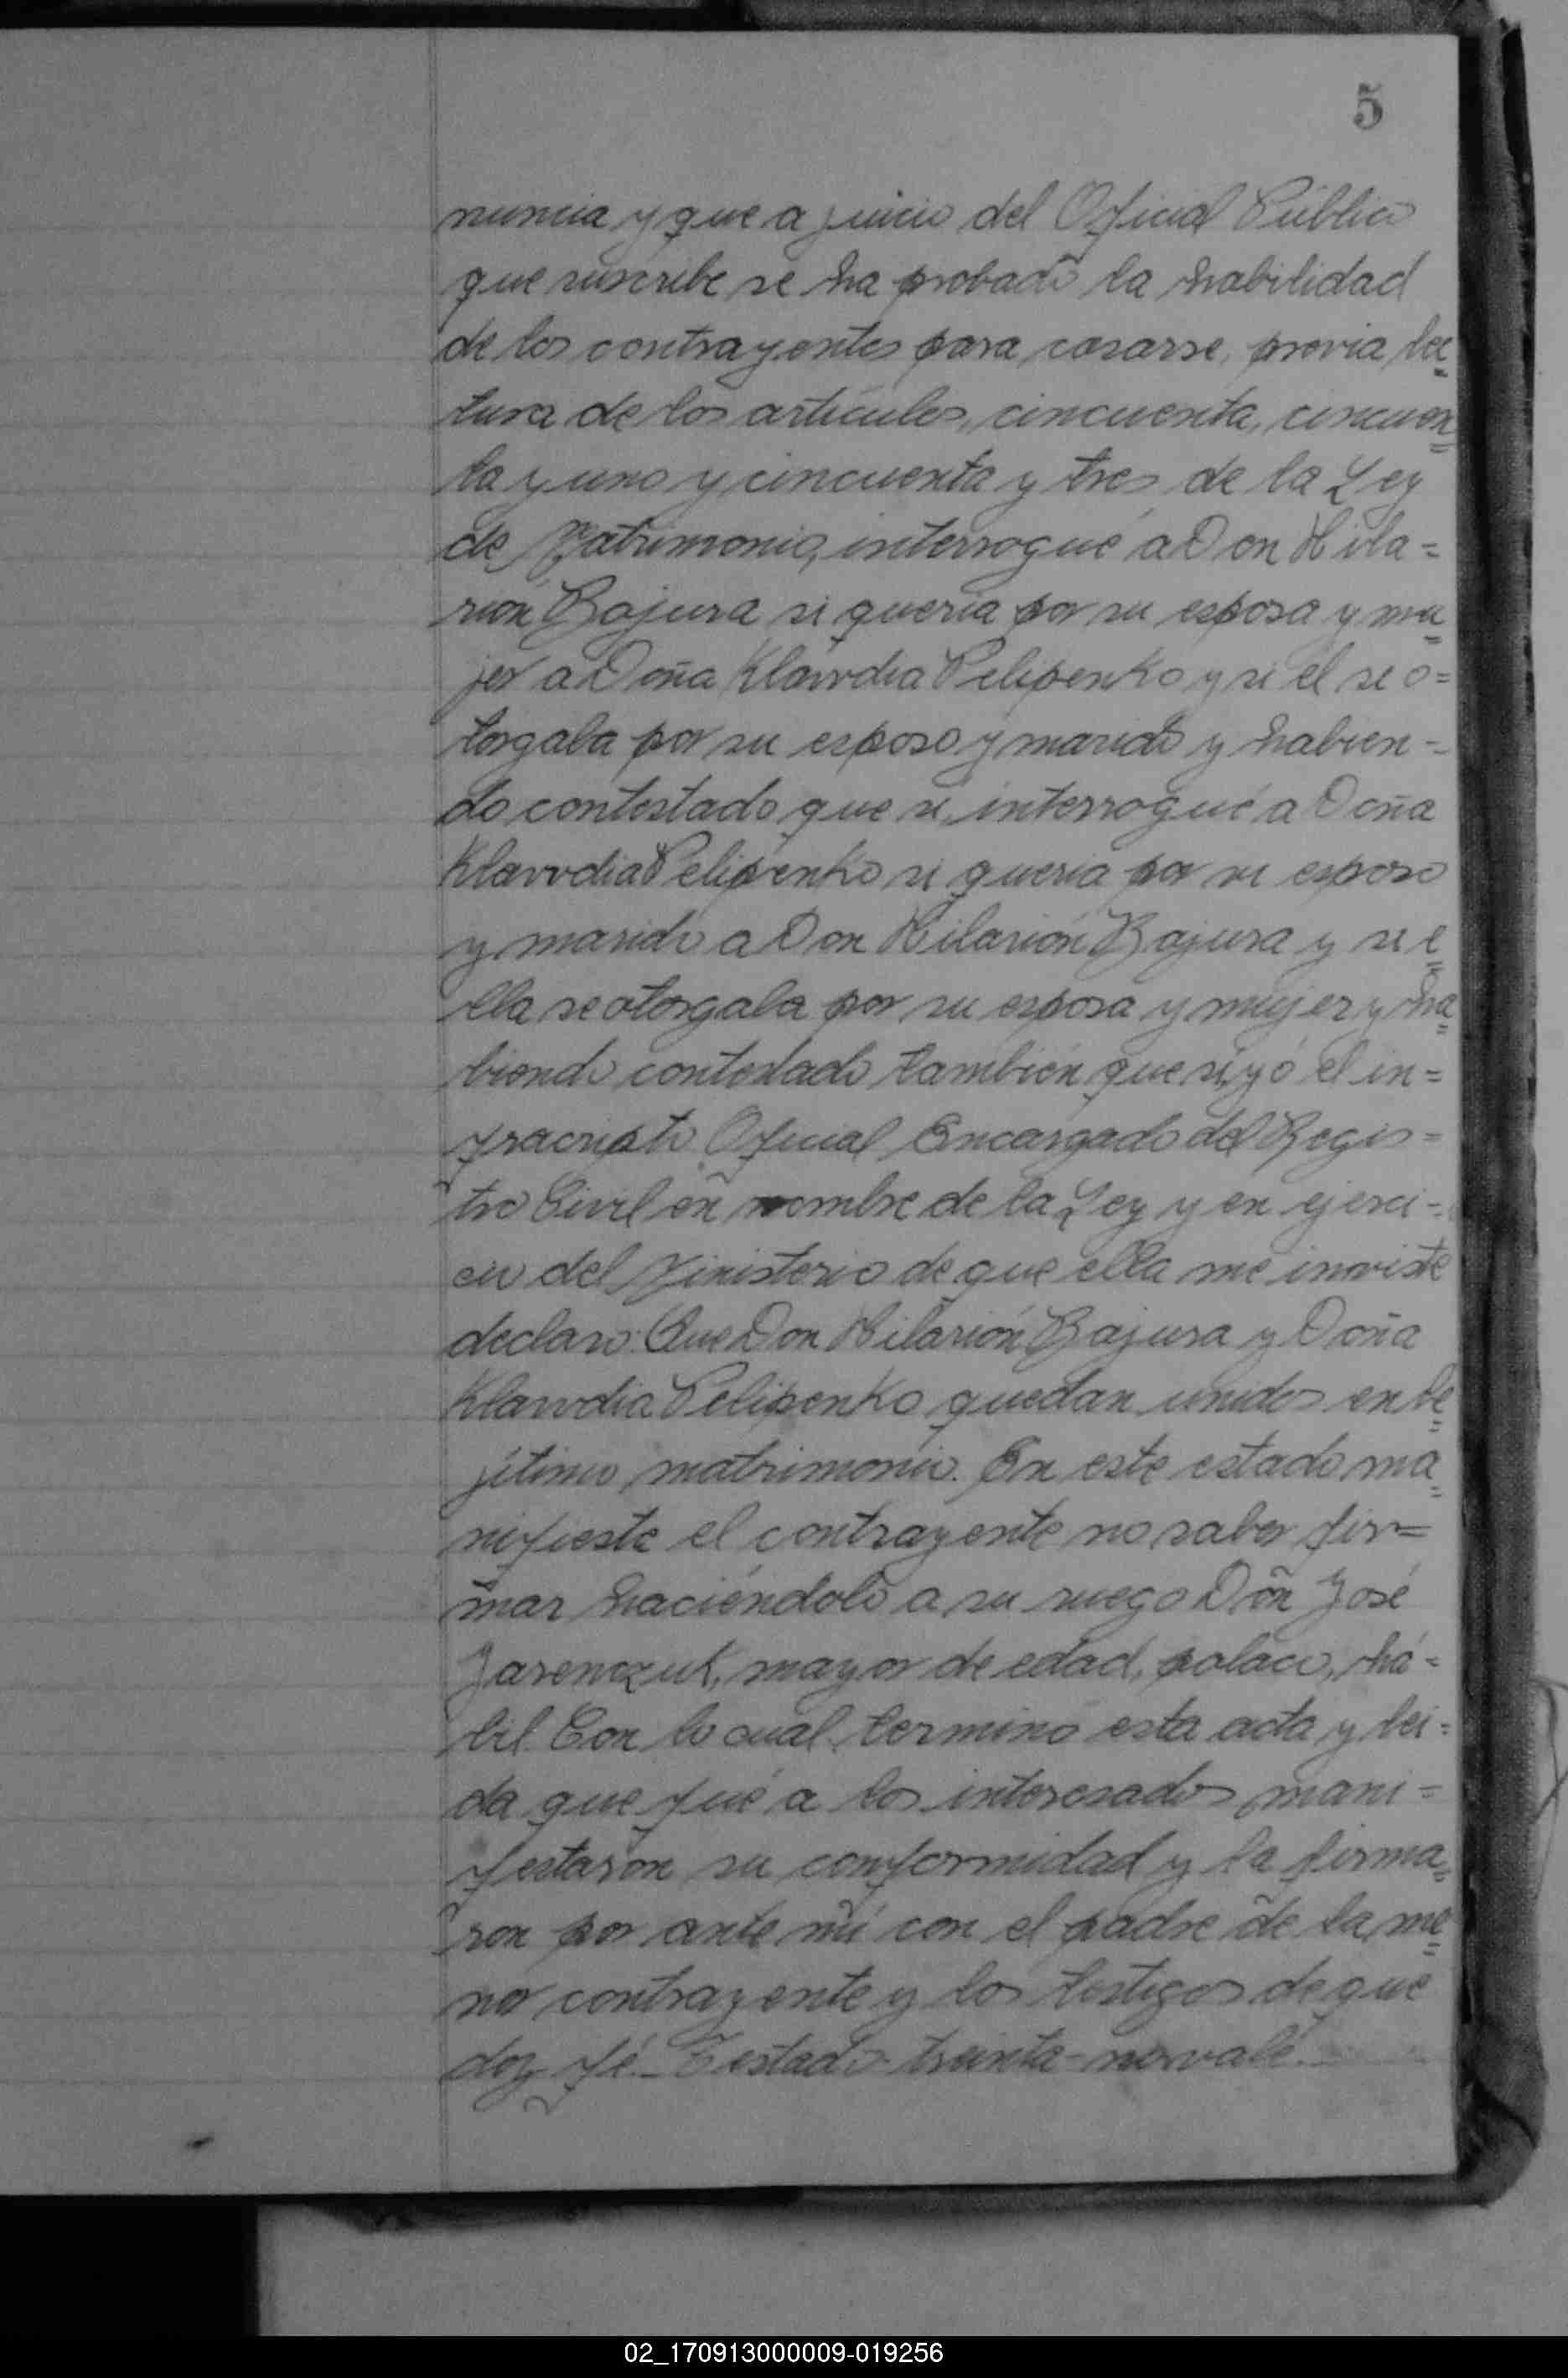 5
nuncia y que a juicio del Oficial Público
que suscribe se ha probado la habilidad
de los contrayentes para casarse, previa lec=
tura de los artículos, cincuenta, cincuen=
ta y uno y cincuenta y tres de la Ley
de Matrimonio, interrogué a Don Hila=
rión Bajura si quería por su esposa y mu=
jer a Doña Klavvdia Pelipenko y si él se o=
torgaba por su esposo y marido y habien=
do contestado que si, interrogué a Doña
Klavvdia Pelipenko si quería por su esposo
y marido a Don Hilarión Bajura y si e=
lla se otorgaba por su esposa y mujer y ha=
biendo contestado también que si, yó el in=
fracripto Oficial Encargado del Regis=
tro Civil en nombre de la Ley y en ejerci=
cio del Ministerio de que ella me inviste
declaro: Que Don Hilarión Bajura y Doña
Klavvdia Pelipenko quedan unidos en le=
jítimo matrimonio. En este estado ma=
nifiesta el contrayente no saber fir=
mar haciéndolo a su ruego Don José
Jaremczuk, mayor de edad, polaco, há=
bil. Con lo cual terminó esta acta y lei=
da que fué a los interesados mani=
festaron su conformidad y la firma=
ron por ante mí con el padre de la me=
nor contrayente y los testigos de que
doy fé._ Testado-treinta-no vale.
02_170913000009-019256